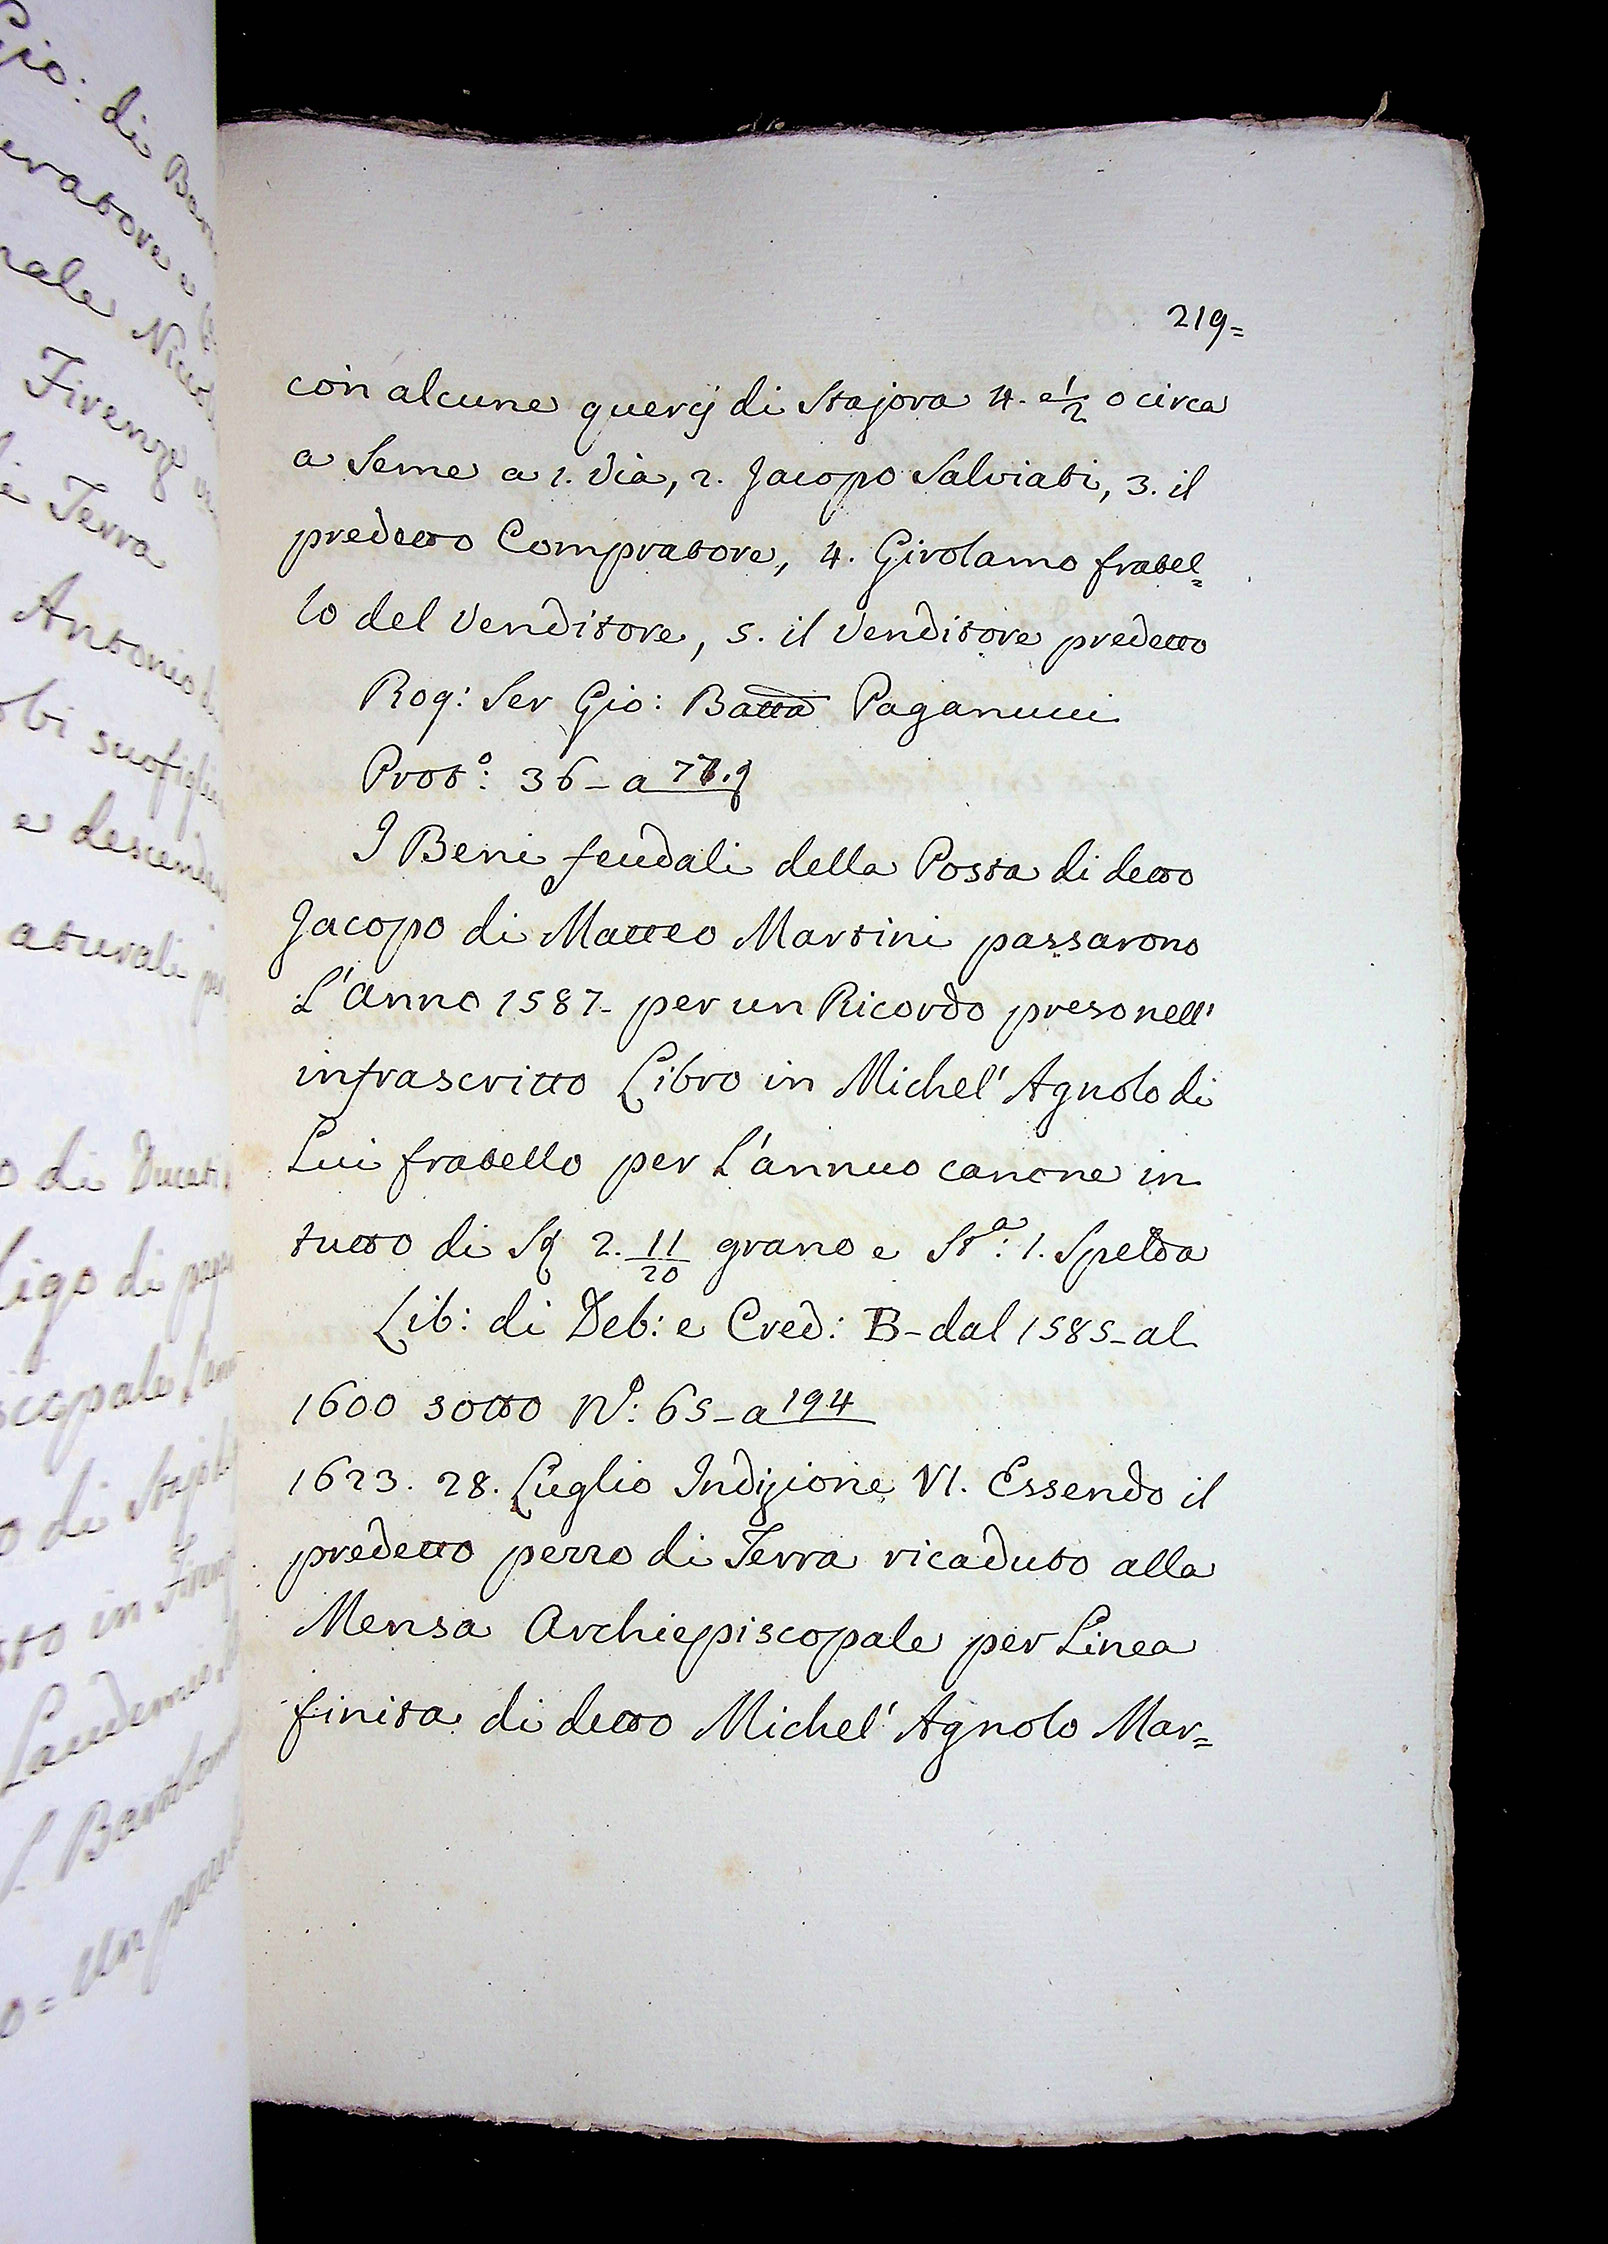 219=
con alcune quercj di Stajora 4. e 1/2 o circa
a Seme a 1. Via, 2. Jacopo Salviati, 3. il
predetto Compratore, 4. Girolamo fratel=
lo del Venditore, 5. il Venditore predetto
Rog: Ser Gio: Batta Paganucci
Protº: 36 - a
I Beni feudali della Posta di detto
Jacopo di Matteo Martini passarono
L'anno 1587 - per un Ricordo preso nell'
infrascritto Libro in Michel' Agnolo di
Lui fratello per L'annuo canone in
tutto di 2. 11/20 grano e Stª: 1. Spelda
Lib: di Deb: e Cred: B - dal 1585 - al
1600 sotto Nº: 65 - a 194
1623. 28. Luglio Indizione VI. Essendo il
predetto pezzo di Terra ricaduto alla
Mensa Archiepiscopale per Linea
finita di detto Michel' Agnolo Mar=
Gio: di
Firenze
Terra
Antonio
suo figlio
e
aturali
di Ducati
di
scopale
di
sto in
Laudemio
Un